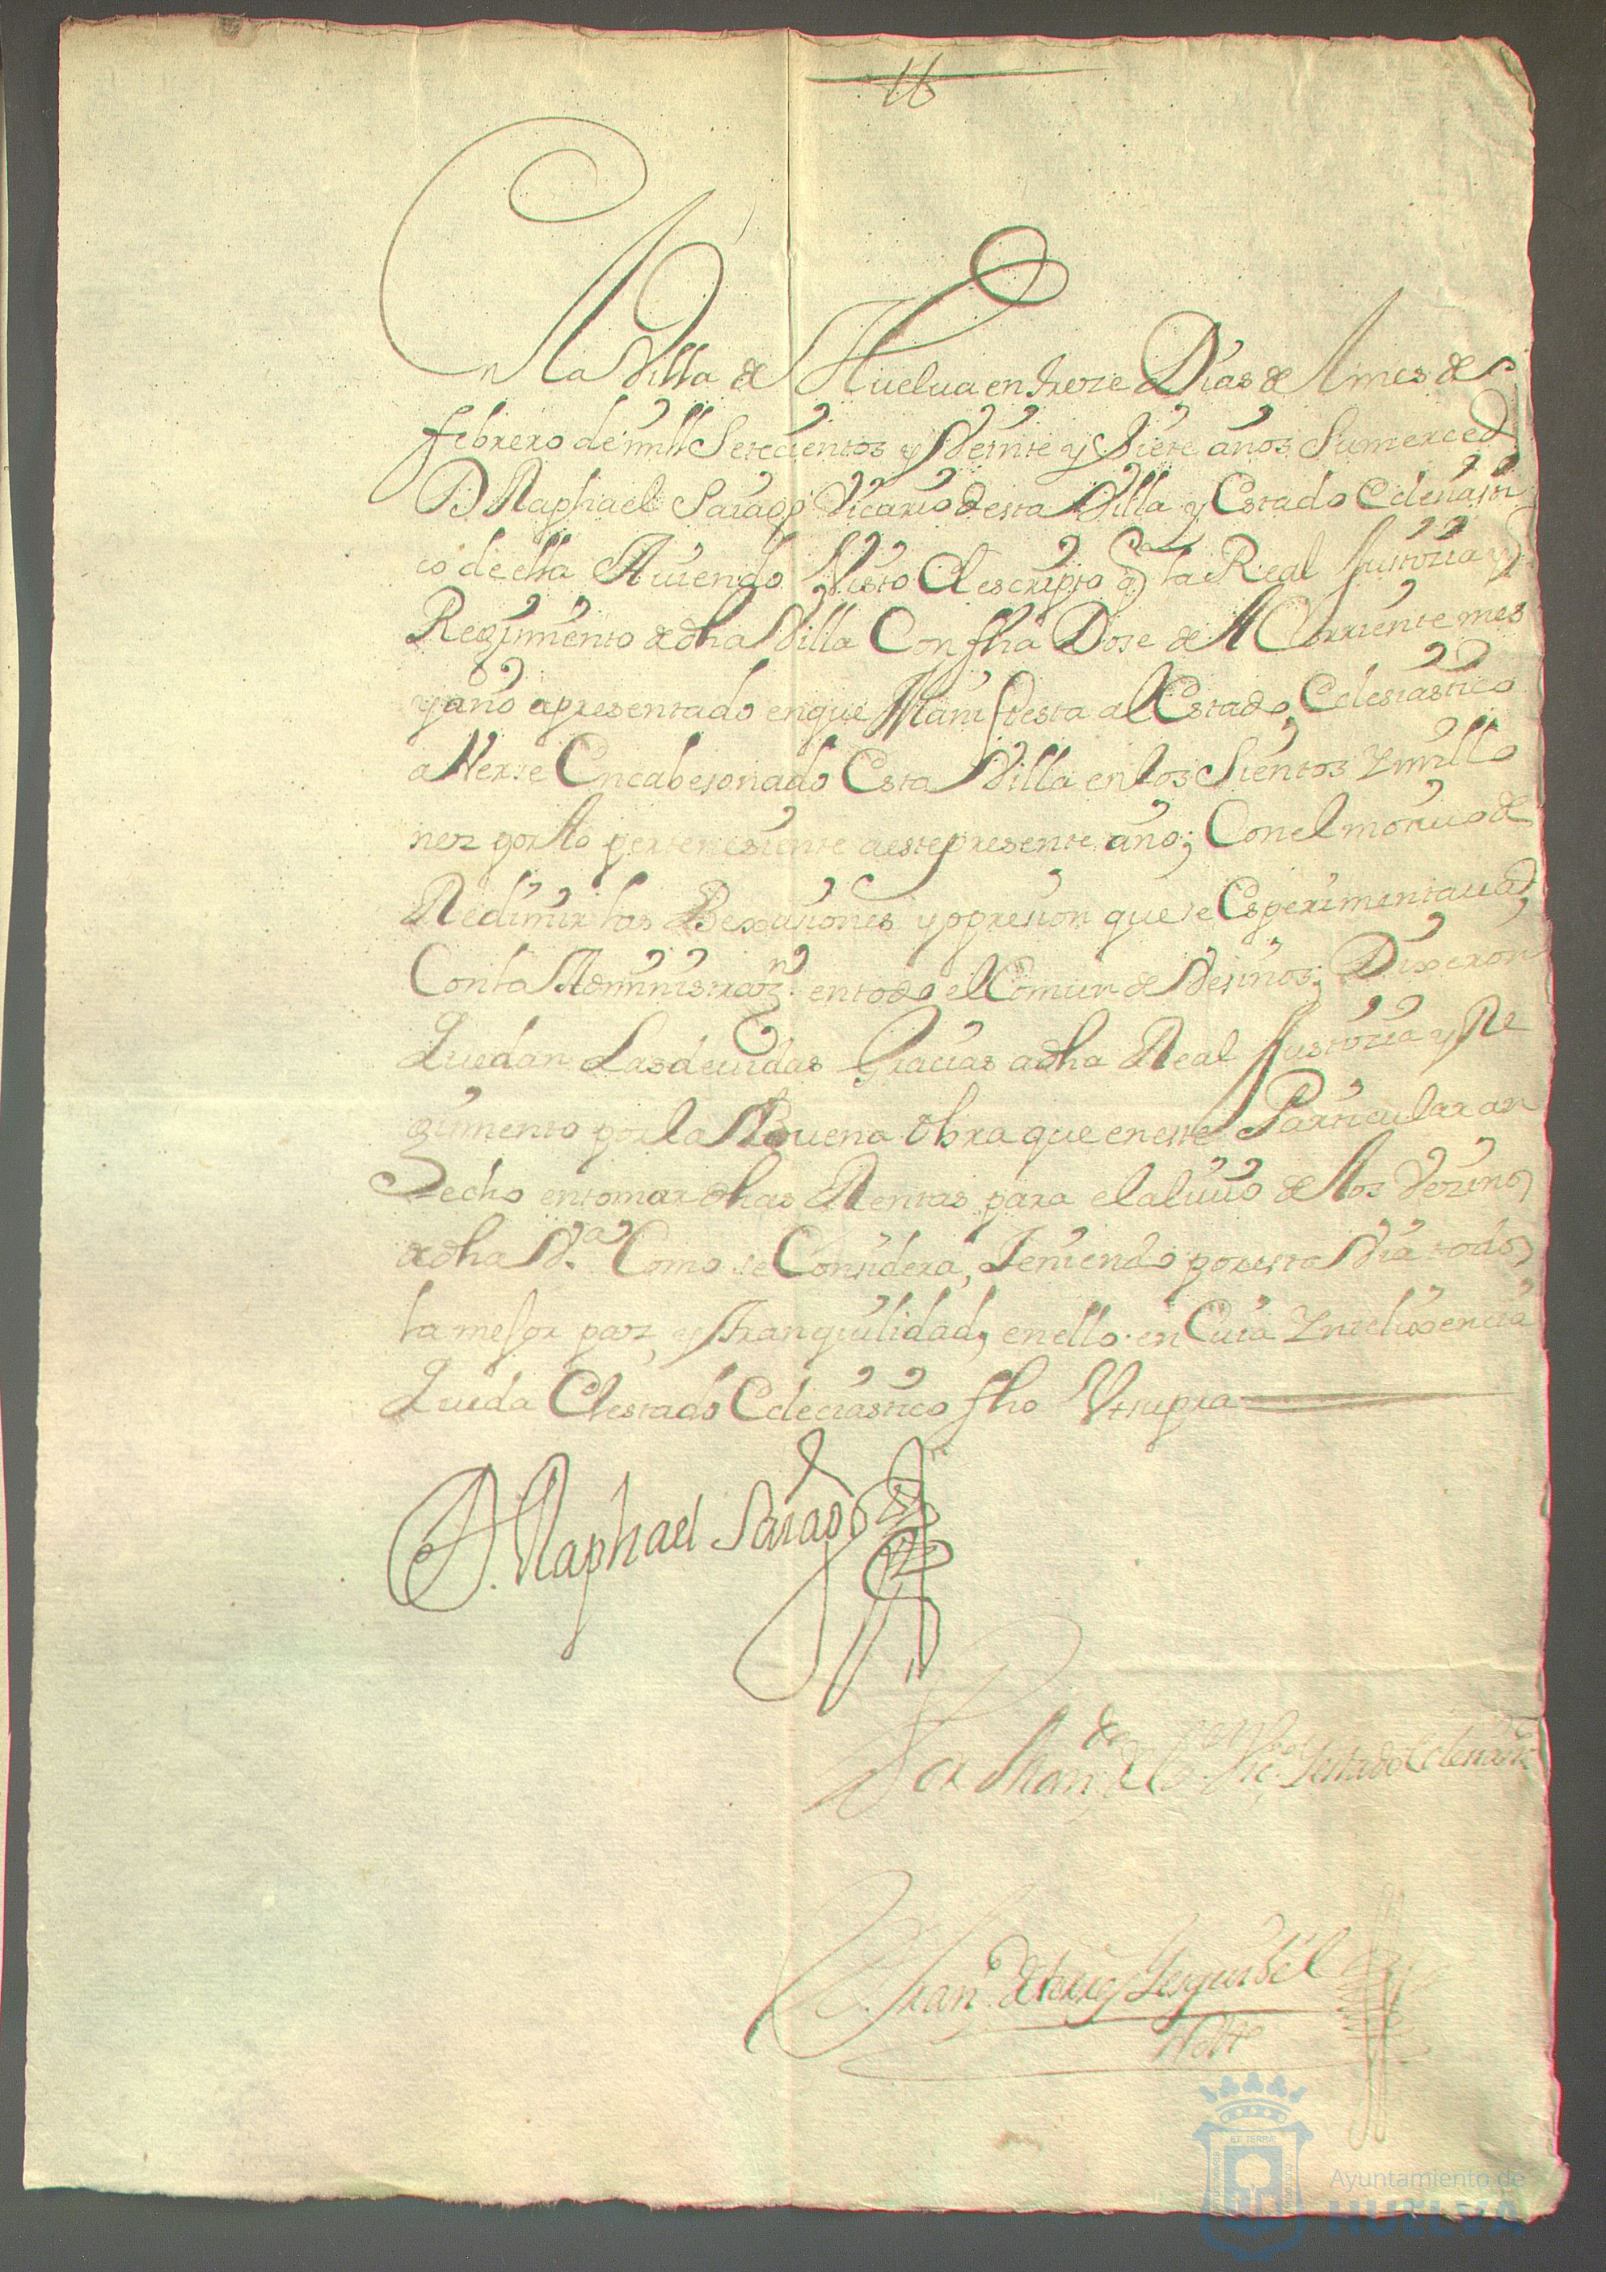 16
En la Villa de Huelua en treze Dias de el mes de
febrero de mill Setecientos y Veinte y siete años Su merced
D Raphael Vicario desta Villa y Estado Eclesiasti
co de ella Auiendo Visto el escripto q la Real Justicia y
Regimiento de dha Villa Con fha Dose del Corriente mes
y año apresentado en que Manifiesta al Estado Eclesiastico
auerse Encabesonado Esta Villa en los Sientos y millo
nes por lo pertenesiente a este presente año; Con el motiuo de
Redimir las Bexasiones y opresion que se Esperimentauan
Con la Administraz.n en todo el Comun de Vesinos; Dixeron
Quedan Las deuidas Gracias a dha Real Justicia y Re
gimiento por la Buena obra que en este Particular an
Hecho en tomar dhas Rentas para el aliuio de los Vezinos
de dha V.a Como se Considera, Teniendo por esta Via todos
la mejor paz, y tranquilidad, en ello en Cuia Ynteligencia
Queda El estado Ecleciastico fho Vt supra
D. Raphael
Por Man.do del S.r Vic.o y estado Eclesiastico
Fran.co de
Not.o
Ayuntamiento de
HUELVA